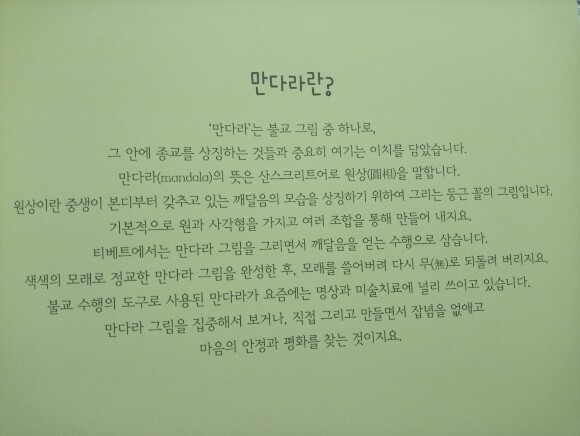 만다라란?
'만다라'는 불교 그림 중 하나로,
그 안에 종교를 상징하는 것들과 중요히 여기는 이치를 담았습니다.
만다라(mandala)의 뜻은 산스크리트어로 원상(圓相)을 말합니다.
원상이란 중생이 본디부터 갖추고 있는 깨달음의 모습을 상징하기 위하여 그리는 둥근 꼴의 그림입니다.
기본적으로 원과 사각형을 가지고 여러 조합을 통해 만들어 내지요.
티베트에서는 만다라 그림을 그리면서 깨달음을 얻는 수행으로 삼습니다.
색색의 모래로 정교한 만다라 그림을 완성한 후, 모래를 쓸어버려 다시 무(無)로 되돌려 버리지요.
불교 수행의 도구로 사용된 만다라가 요즘에는 명상과 미술치료에 널리 쓰이고 있습니다.
만다라 그림을 집중해서 보거나, 직접 그리고 만들면서 잡념을 없애고
마음의 안정과 평화를 찾는 것이지요.